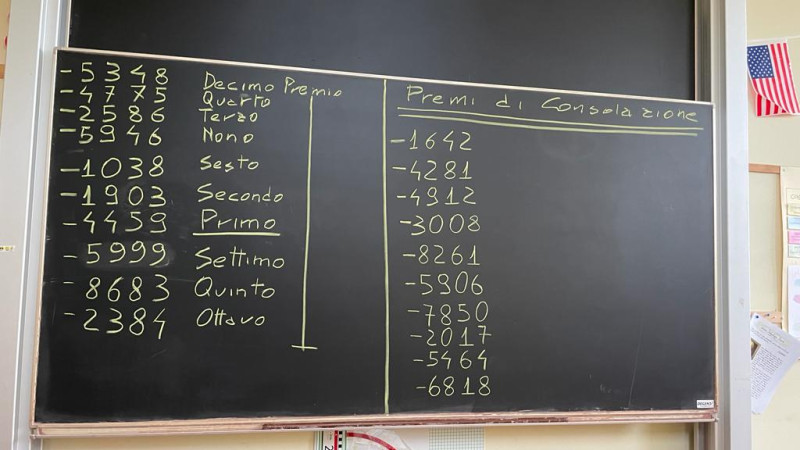 -5348 Decimo Premio
-4775 Quarto
-2586 Terzo
-5946 Nono
-1038 Sesto
-1903 Secondo
-4459 Primo
-5999 Settimo
-8683 Quinto
-2384 Ottavo
Premi di Consolazione
-1642
-4281
-4912
-3008
-8261
-5906
-7850
-2017
-5464
-6818